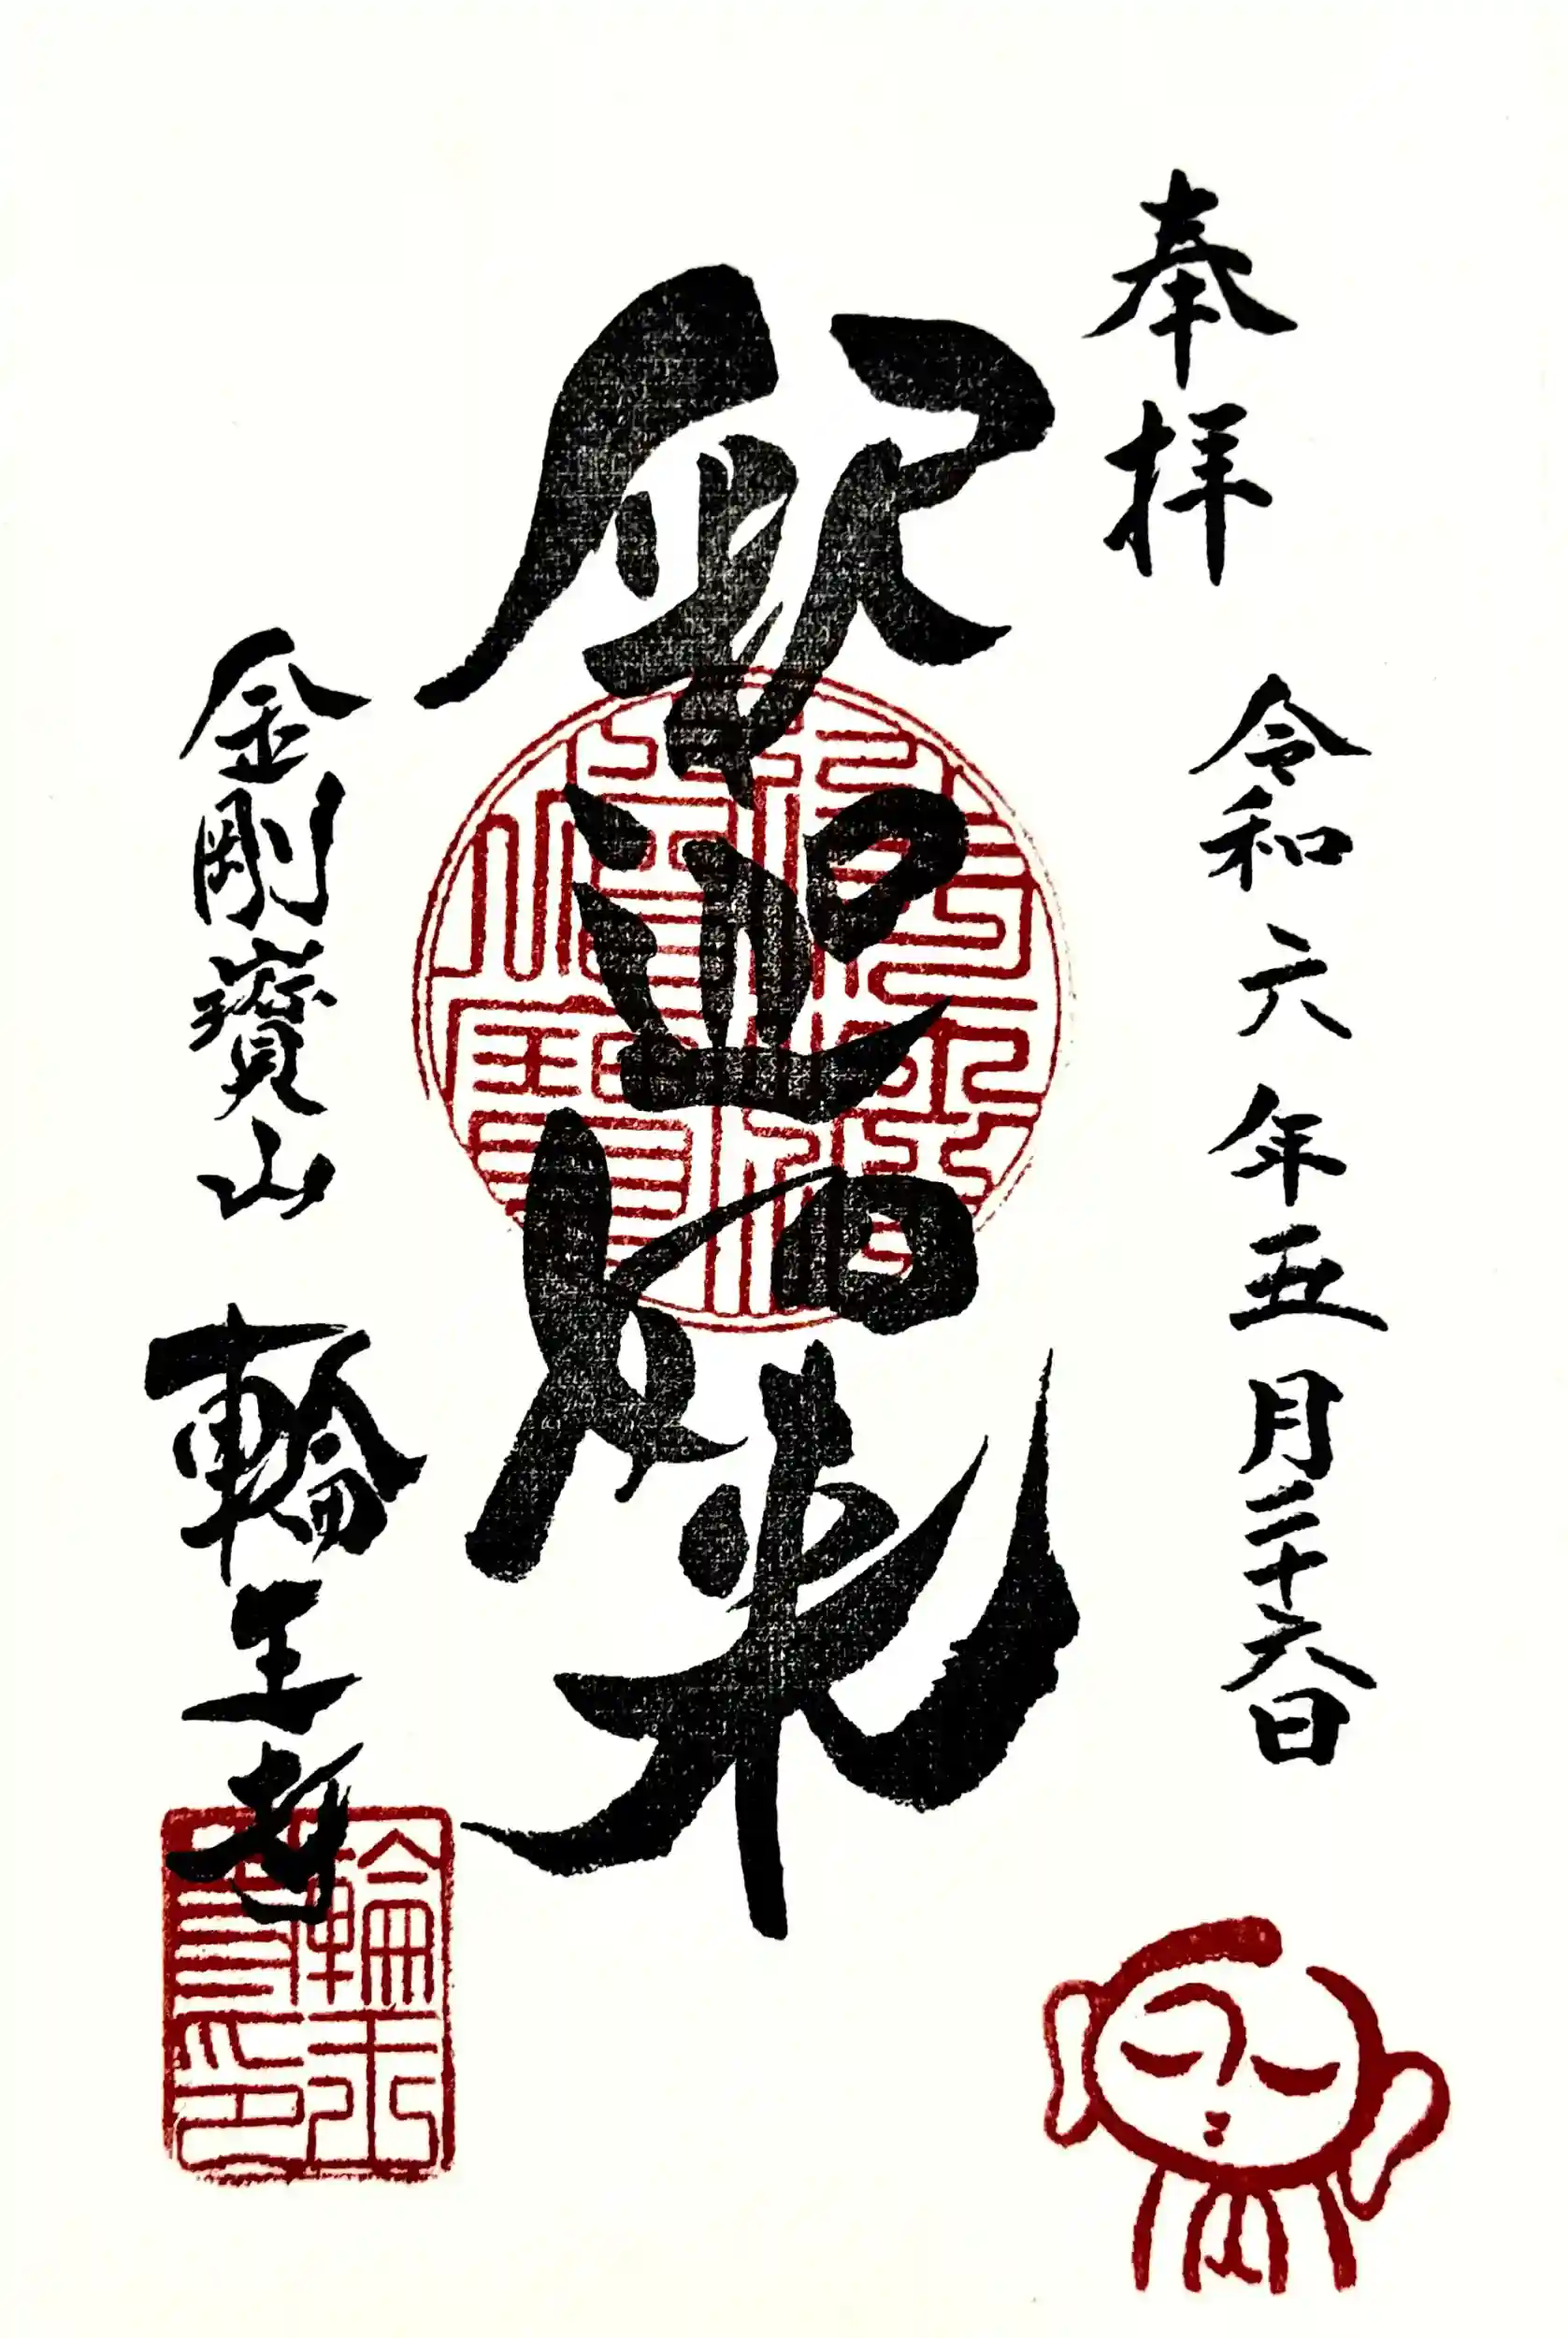 奉拝
令和六年五月二十六日
釈迦如来
金剛寳山 輪王寺
輪王寺印